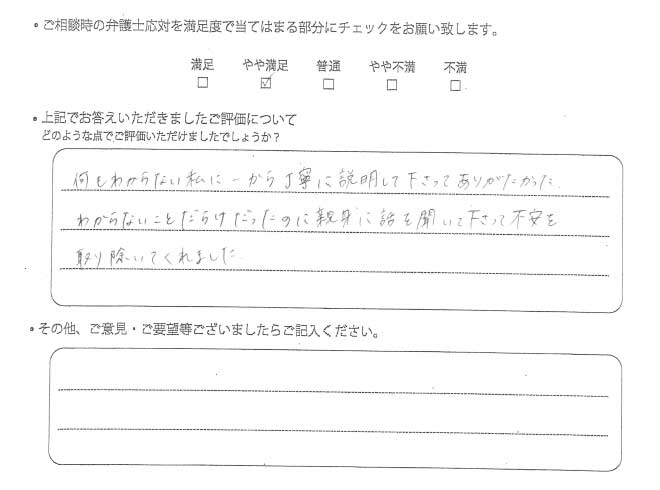 ・ご相談時の弁護士応対を満足度で当てはまる部分にチェックをお願い致します。
満足 やや満足 普通 やや不満 不満
□ ☑ □ □ □
・上記でお答えいただきましたご評価について
どのような点でご評価いただけましたでしょうか？
何もわからない私に一から丁寧に説明して下さってありがたかった.
わからないことだらけだったのに親身に話を聞いて下さって不安を
取り除いてくれました.
・その他、ご意見・ご要望等ございましたらご記入ください。